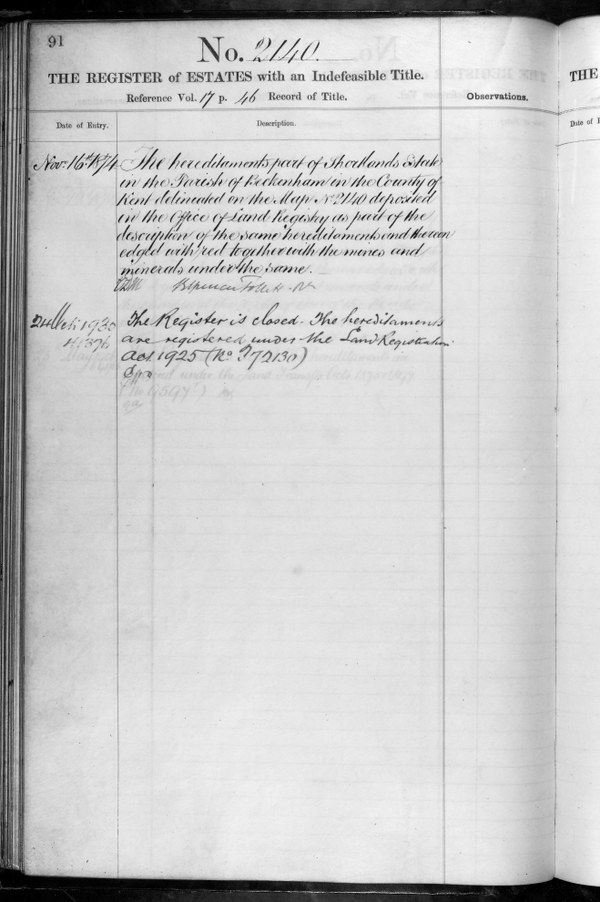 91
No. 2140.
THE REGISTER of ESTATES with an Indefeasible Title.
Reference Vol. 17 p. 46 Record of Title.
Observations.
Date of Entry.
Description.
Nov. 16th 1874
The hereditaments part of Shortlands Estate
in the Parish of Beckenham in the County of
Kent delineated on the Map No. 2140 deposited
in the Office of Land Registry as part of the
description of the same hereditaments and thereon
edged with red together with the mines and
minerals under the same.
24 1930
The Register is closed. The hereditaments
are registered under the Land Registration
Act. 1925 (No. P72130)
under the Land Transfer
THE
Date of E